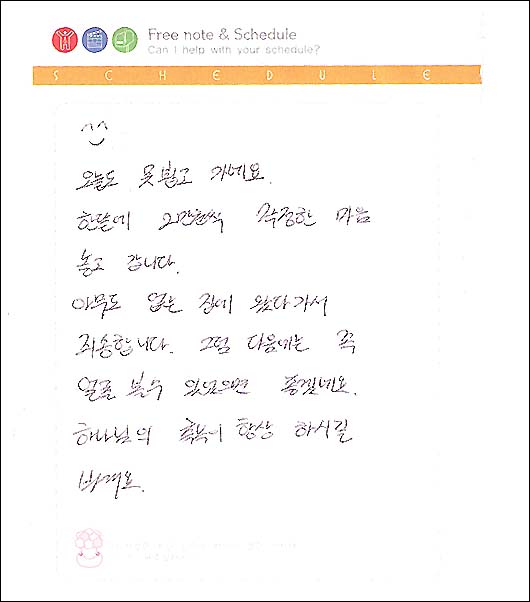 Free note & Schedule
Can I help with your schedule?
SCHEDULE
^^
오늘도 못뵙고 가네요.
한달에 2만원씩 걱정한 마음
놓고 갑니다.
아무도 없는 집에 왔다가서
죄송합니다. 그럼 다음에는 꼭
얼굴 볼수 있었으면 좋겠네요.
하나님의 축복이 항상 하시길
바래요.